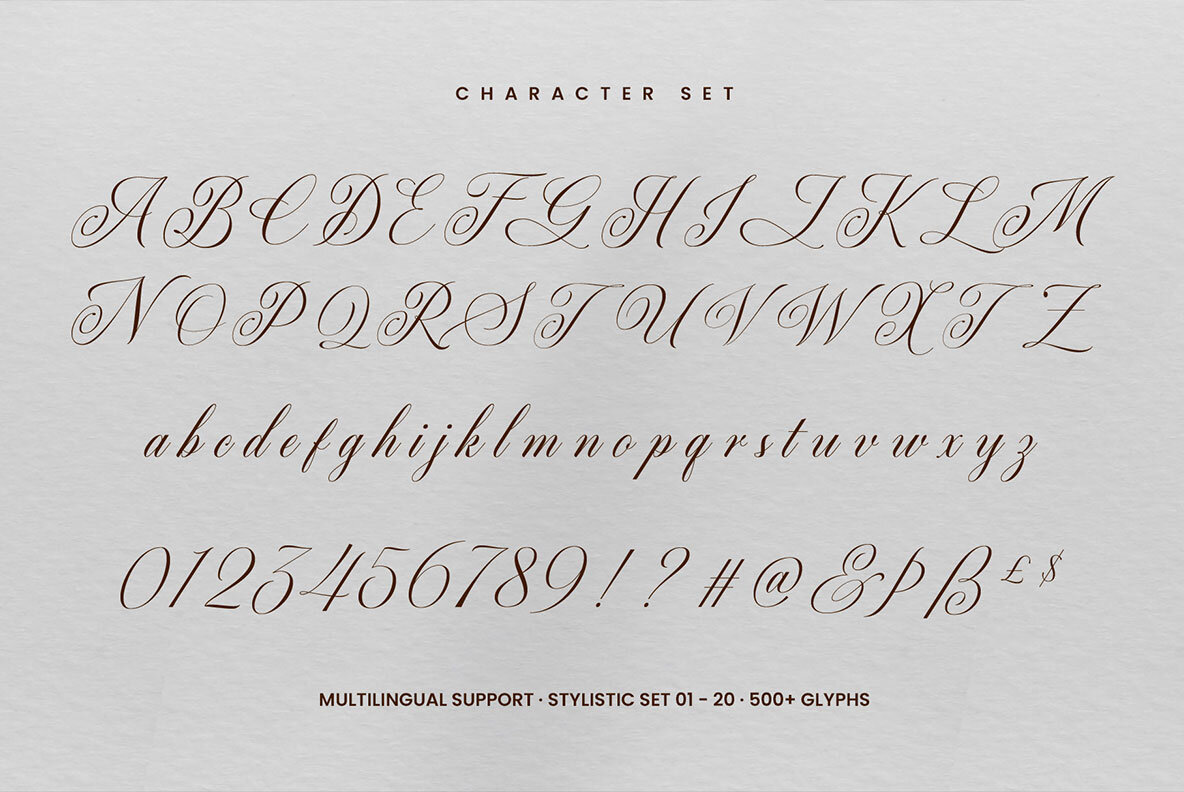 CHARACTER SET
ABCDEFGHIJKLM
NOPQRSTUVWXTZ
abcdefghijklmnopqrstuvwxyz
0123456789!?#@&þß£$
MULTILINGUAL SUPPORT · STYLISTIC SET 01 - 20 · 500+ GLYPHS